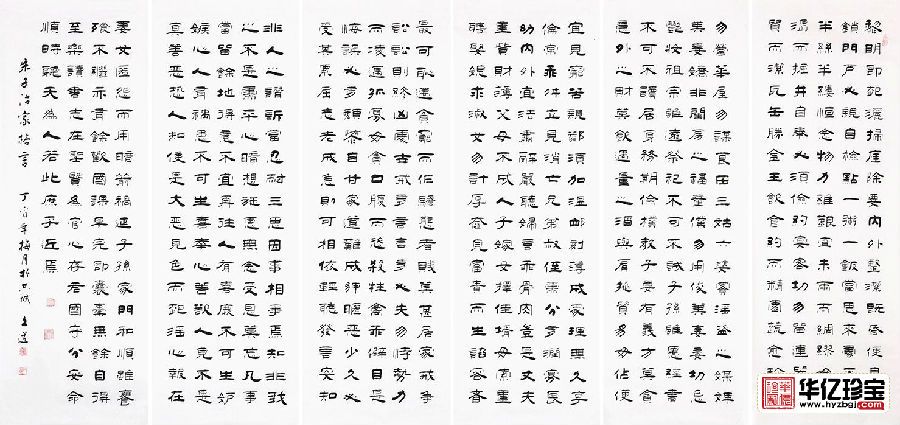 黎明即起灑掃庭除要內外整潔既昏便息
鎖門戶必親自檢點一粥一飯當思來處不
半絲半縷恆念物力維艱宜未雨綢繆毋
渴而掘井自奉必須儉約宴客切勿留連
質而潔瓦缶勝金玉飲食約而精園蔬
勿營華屋勿謀良田三姑六婆實淫盜之媒婢
美妾嬌非閨房之福童僕勿用俊美妻妾切忌
艷妝祖宗雖遠祭祀不可不誠子孫雖愚經書
不可不讀居身務期儉樸教子要有義方莫貪
意外之財莫飲過量之酒與肩挑貿易勿佔便
宜見窮苦親鄰須加溫卹刻薄成家理無久享
倫常乖舛立見消亡兄弟叔侄需分多潤寡長
幼內外宜法肅辭嚴聽婦言乖骨肉豈是丈夫
重貲財薄父母不成人子嫁女擇佳婿毋索重
聘娶媳求淑女勿計厚奩見富貴而生諂容者
最可恥遇貧窮而作驕態者賤莫甚居家戒爭
訟訟則終凶處世戒多言言多必失勿恃勢力
而凌逼孤寡勿貪口腹而恣殺牲禽乖僻自是
悔誤必多頹惰自甘家道難成狎昵惡少久必
受其累屈志老成急則可相依輕聽發言安知
非人之譖訴當忍耐三思因事相爭焉知非我
之不是需平心暗想施惠無念受恩莫忘凡事
當留餘地得意不宜再往人有喜慶不可生妒
嫉心人有禍患不可生喜幸心善欲人見不是
真善惡恐人知便是大惡見色而起淫心報在
妻女匿怨而用暗箭禍延子孫家門和順雖饔
飧不繼亦有餘歡國課早完即囊橐無餘自得
至樂讀書志在聖賢為官心存君國守分安命
順時聽天為人若此庶乎近焉
朱子治家格言 丁酉年梅月於京城
华亿珍宝
www.hyzbgj.com